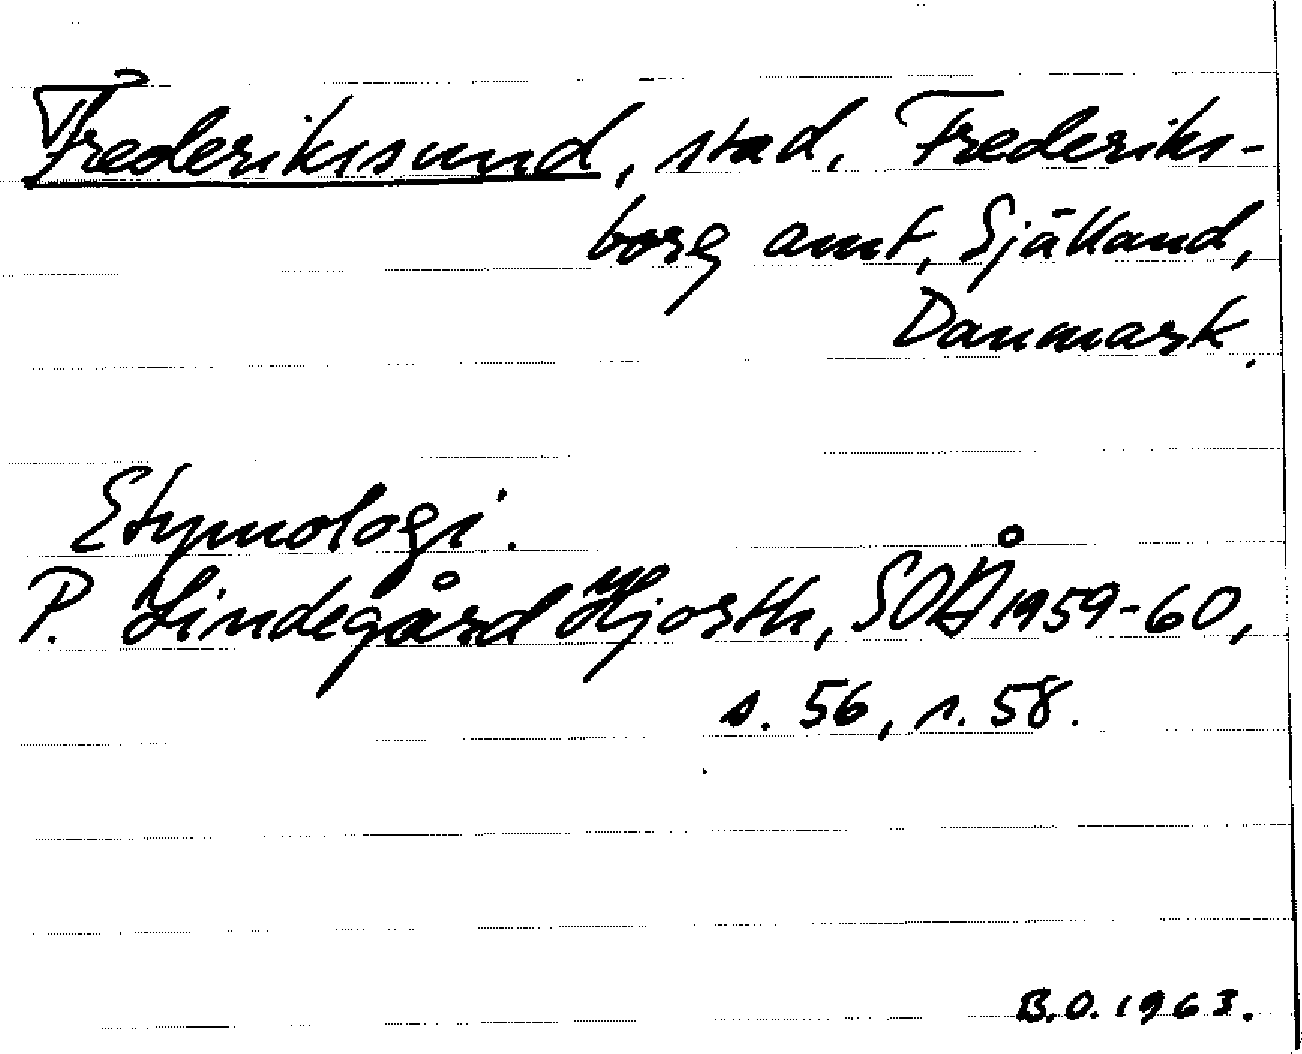 Frederikssund, stad, Frederiks-
borg amt, Själland,
Danmark.
Etymologi.
P. Lindegård Hjorth, SOÅ 1959-60,
s. 56, s. 58.
B.O. 1963.